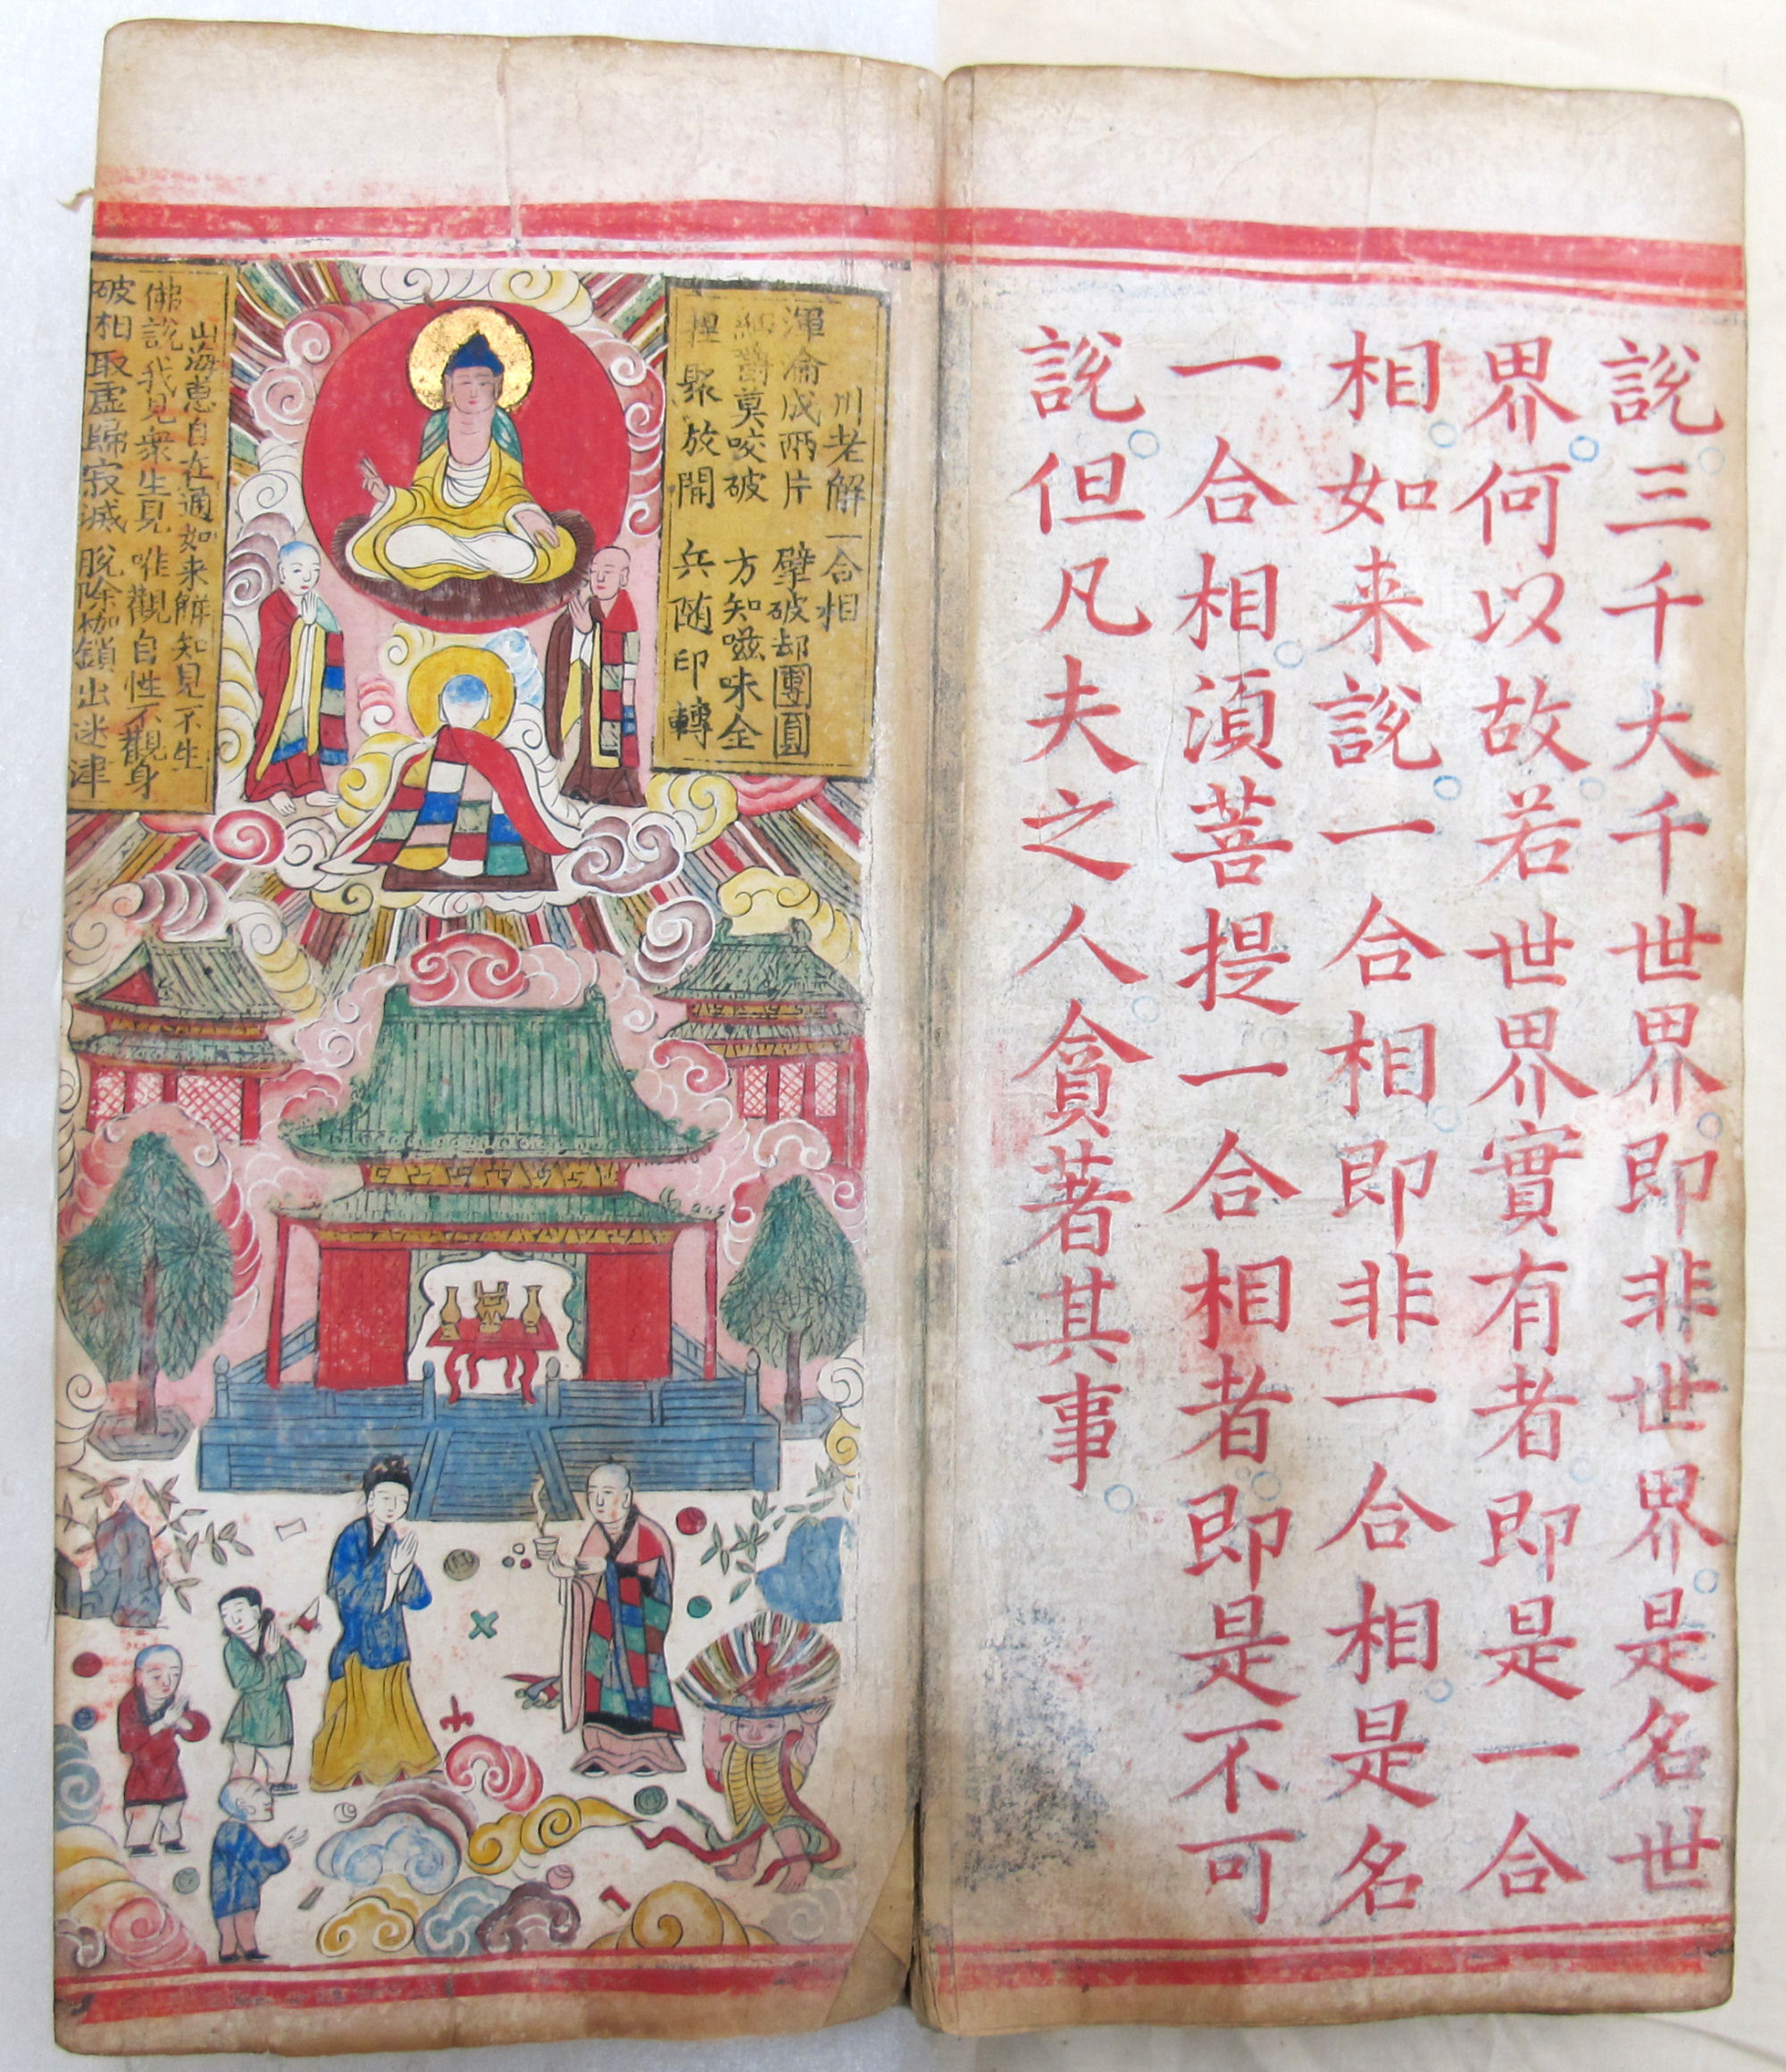 說三千大千世界即非世界是名世
界何以故若世界實有者即是一合
相如来說一合相即非一合相是名
一合相須菩提一合相者即是不可
說但凡夫之人貪著其事
川老解一合相
渾侖成兩片 擘破却團圓
細嚼莫咬破 方知嗞味全
捏聚放開 兵随印轉
山海慧自在通如来解知見不生
佛說我見衆生見 唯觀自性不觀身
破相取虛歸寂滅 脫除枷鎖出迷津